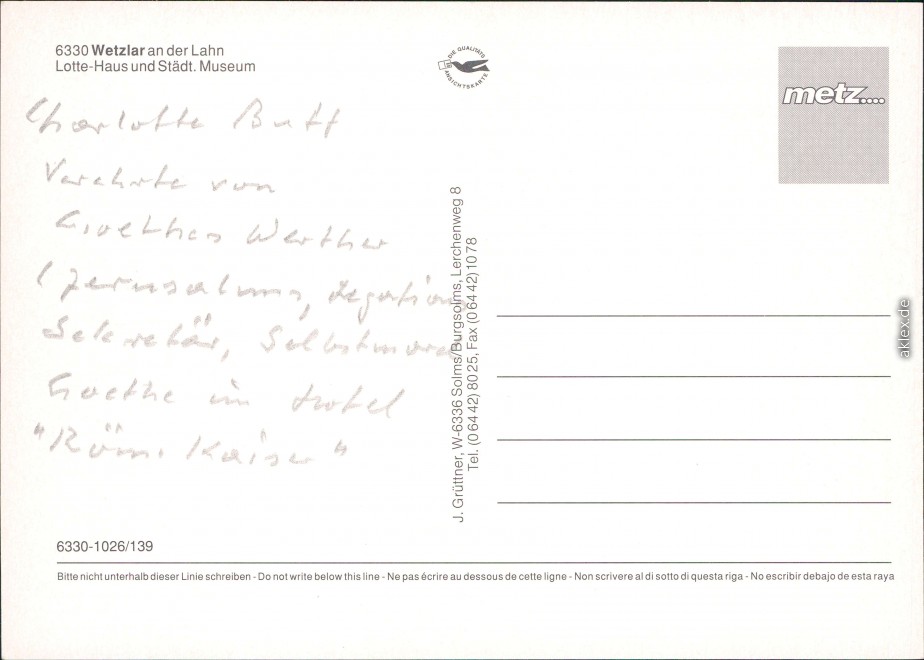 6330 Wetzlar an der Lahn
Lotte-Haus und Städt. Museum
DIE QUALITÄTS
ANSICHTSKARTE
metz....
Charlotte Buff
Verehrte von
Goethes Werther
(Jerusalem, Legations
Sekretär, Selbstmord
Goethe im Hotel
"Röm. Kaiser"
J. Grüttner, W-6336 Solms/Burgsolms, Lerchenweg 8
Tel. (0 64 42) 80 25, Fax (0 64 42) 10 78
aklex.de
6330-1026/139
Bitte nicht unterhalb dieser Linie schreiben - Do not write below this line - Ne pas écrire au dessous de cette ligne - Non scrivere al di sotto di questa riga - No escribir debajo de esta raya